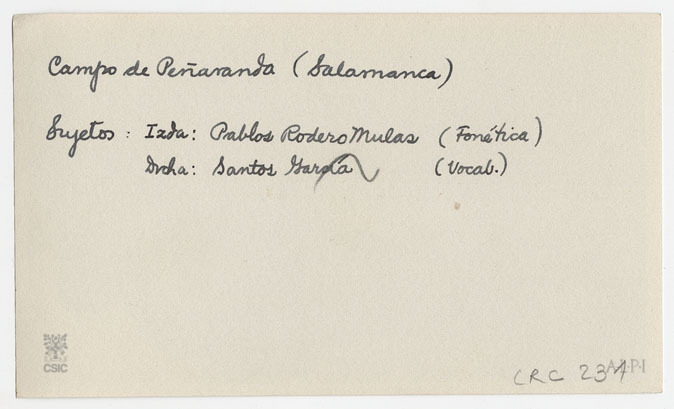 Campo de Peñaranda (Salamanca)
Sujetos : Izda: Pablos Rodero Mulas (Fonética)
Drcha: Santos García (Vocab.)
CSIC
A·L·P·I
CRC 237